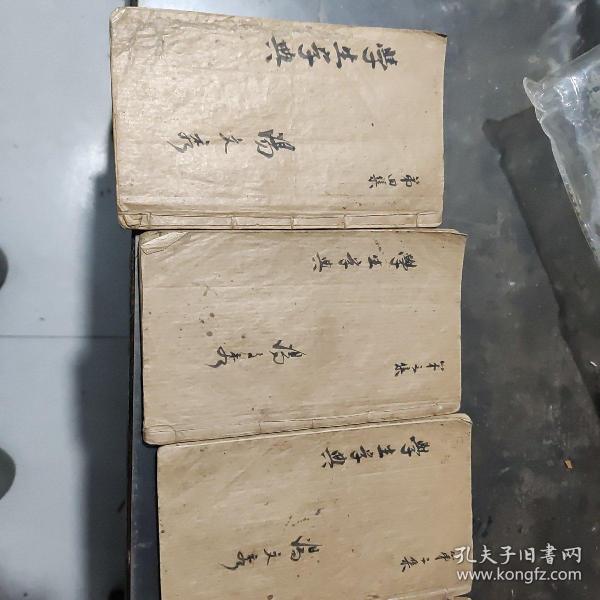 學生字典
湯文彩
第四集
學生字典
湯文彩
第三集
學生字典
湯文彩
第二集
孔夫子旧书网
www.kongfz.com